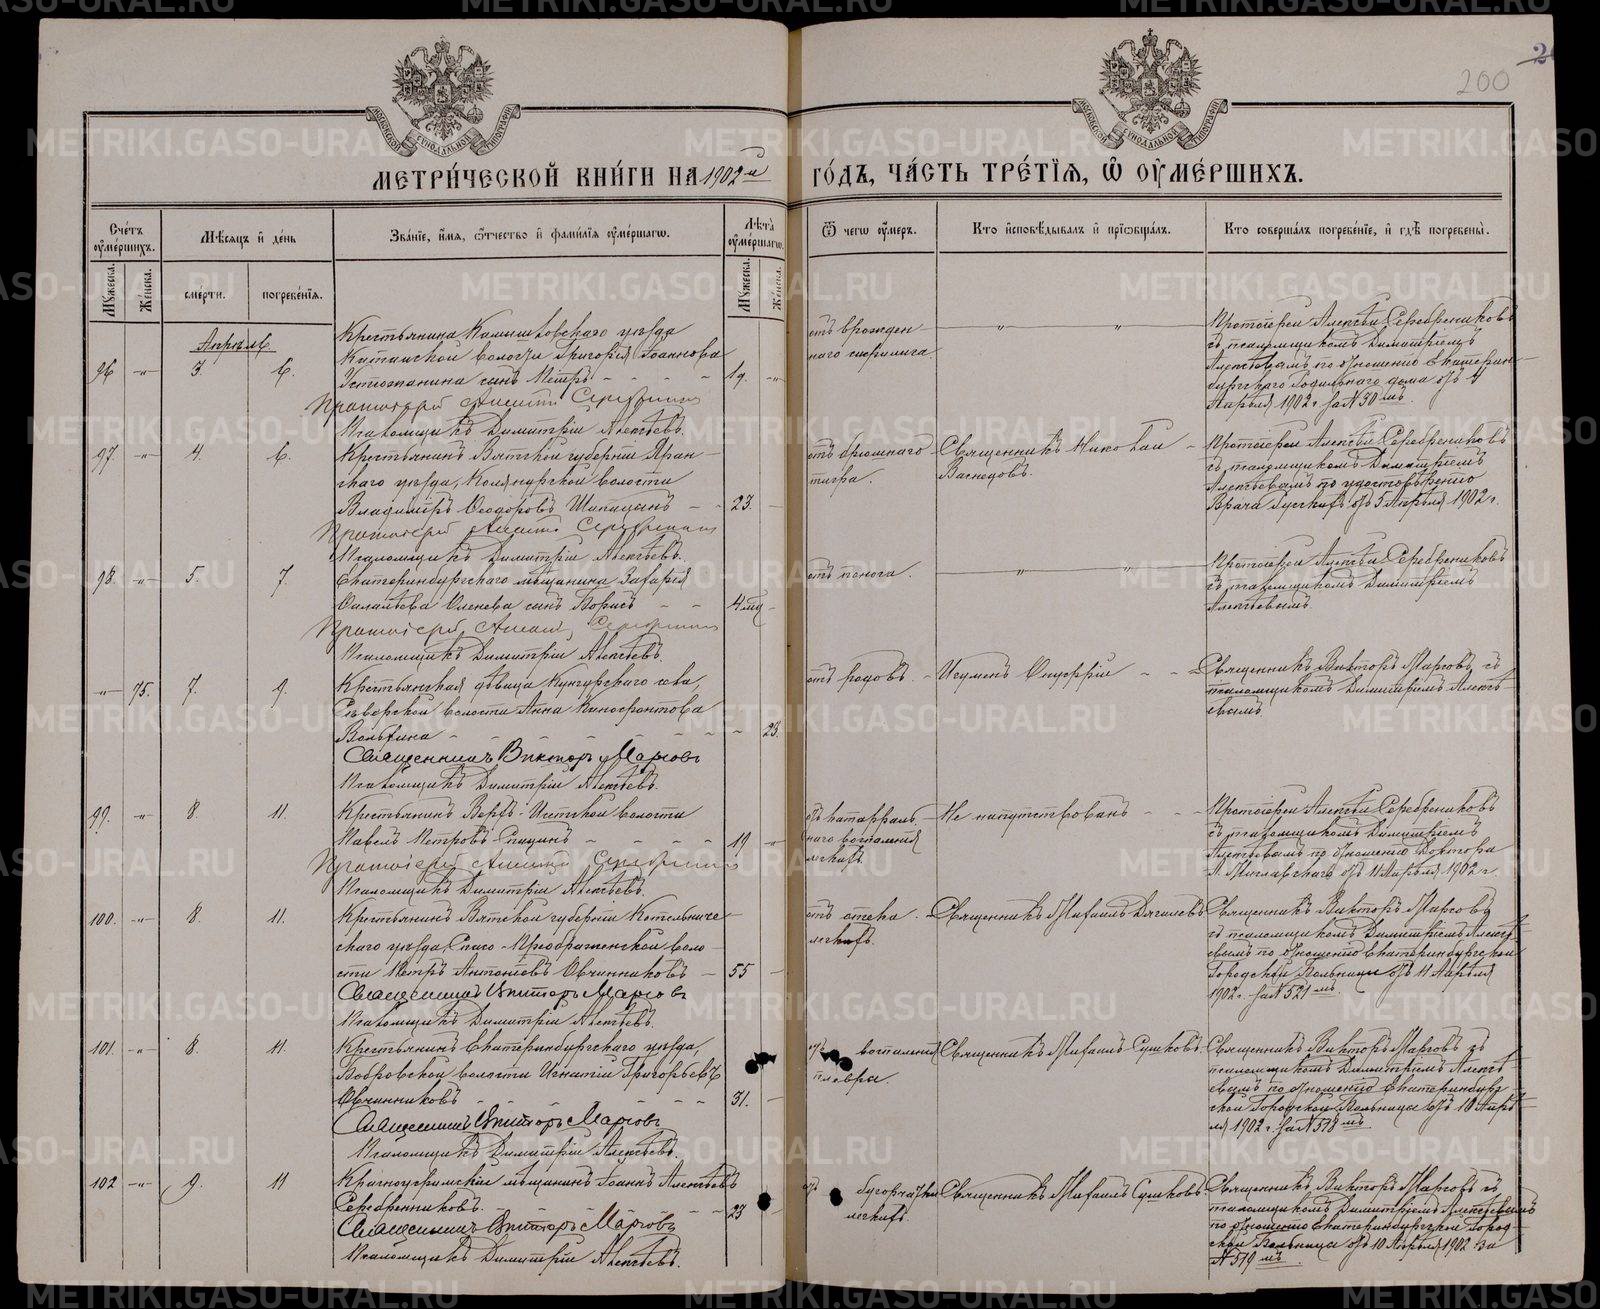 200
МОСКОВСКОЙ СѴНОДАЛЬНОЙ ТИПОГРАФІИ
МОСКОВСКОЙ СѴНОДАЛЬНОЙ ТИПОГРАФІИ
МЕТРИ́ЧЕСКОЙ КНИ́ГИ НА 1902й ГО́ДЪ, ЧА́СТЬ ТРЕ́ТІѦ, Ѿ ОУ҆МЕ́РШИХЪ.
Сче́тъ оу҆ме́ршихъ.
Мѣ́сяцъ и҆ де́нь
Зва́нїе, и҆́мѧ, ѻ҆́тчество и҆ фами́лїѧ оу҆ме́ршагѡ.
Лѣ́та оу҆ме́ршагѡ.
Ѿ чегѡ̀ оу҆́меръ.
Кто̀ и҆сповѣ́дывалъ и҆ прїѡбща́лъ.
Кто̀ соверша́лъ погребе́нїе, и҆ гдѣ̀ погребены̀.
Му́жеска.
Же́нска.
сме́рти.
погребе́нїѧ.
Му́жеска.
Же́нска.
Апрѣль.
96 -"- 3. 6.
Крестьянина Камышловскаго уѣзда
волости Григорія Іоаннова
Устюжанина сынъ Петръ - - - - 1д. -"-
Протоіерей Алексій Серебренниковъ
Псаломщикъ Димитрій Алексѣевъ.
отъ врожден-
наго сифилиса.
-"- -"-
Протоіерей Алексѣй Серебрениковъ
съ псаломщикомъ Димитріемъ
Алексѣевымъ по отношенію Екатерин-
бургскаго Родильнаго дома отъ 4
Апрѣля 1902 г. за № 30мъ.
97. -"- 4. 6.
Крестьянинъ Вятской губерніи Яран-
скаго уѣзда, волости
Владиміръ Ѳеодоровъ - - 23. -
Протоіерей Алексій Серебренниковъ
Псаломщикъ Димитрій Алексѣевъ.
отъ брюшнаго
тифа.
Священникъ Николай -
Васнецовъ.
Протоіерей Алексѣй Серебрениковъ
съ псаломщикомъ Димитріемъ
Алексѣевымъ по удостовѣренію
Врача отъ 5 Апрѣля 1902 г.
98. -"- 5. 7.
Екатеринбургскаго мѣщанина Захарія
сынъ Борисъ - - 4 мц -
Протоіерей Алексій Серебренниковъ
Псаломщикъ Димитрій Алексѣевъ.
отъ поноса.
-"- -"-
Протоіерей Алексѣй Серебрениковъ
съ псаломщикомъ Димитріемъ
Алексѣевымъ.
-"- 75. 7. 9.
Крестьянская дѣвица Кунгурскаго уѣзда,
волости Анна Ксенофонтова
- - - - - - - 23.
Священникъ Викторъ Марковъ
Псаломщикъ Димитрій Алексѣевъ.
отъ родовъ.
- Игуменъ - -
Священникъ Викторъ Марковъ съ
псаломщикомъ Димитріемъ Алексѣ-
евымъ.
99. -"- 8. 11.
Крестьянинъ Верхъ-Исетской волости
Павелъ Петровъ Спицинъ - - - - 19 -
Протоіерей Алексій Серебренниковъ
Псаломщикъ Димитрій Алексѣевъ.
отъ катарраль-
наго воспаленія
легкихъ.
Не напутствованъ - -
Протоіерей Алексѣй Серебрениковъ
съ псаломщикомъ Димитріемъ
Алексѣевымъ по отношенію Доктора
отъ 11 Апрѣля 1902 г.
100. -"- 8. 11.
Крестьянинъ Вятской губерніи Котельниче-
скаго уѣзда, Спасо-Преображенской воло-
сти Петръ Антоніевъ Овчинниковъ - 55 -
Священникъ Викторъ Марковъ
Псаломщикъ Димитрій Алексѣевъ.
отъ отека
легкихъ.
Священникъ Михаилъ Дягилевъ
Священникъ Викторъ Марковъ
съ псаломщикомъ Димитріемъ Алексѣ-
евымъ по отношенію Екатеринбургской
Городской Больницы отъ 11 Апрѣля
1902 г. за № 521мъ.
101. -"- 8. 11.
Крестьянинъ Екатеринбургскаго уѣзда,
Бобровской волости Игнатій Григорьевъ
Овчинниковъ - - - - - - - 31. -
Священникъ Викторъ Марковъ
Псаломщикъ Димитрій Алексѣевъ.
отъ воспаленія
плевры.
Священникъ Михаилъ Сушковъ.
Священникъ Викторъ Марковъ съ
псаломщикомъ Димитріемъ Алексѣ-
евымъ по отношенію Екатеринбург-
ской Городской Больницы отъ 10 Апрѣ-
ля 1902 г. за № 518мъ.
102 -"- 9. 11
Красноуфимскій мѣщанинъ Іоаннъ Алексѣевъ
Серебренниковъ. - - - - - - 23 -
Священникъ Викторъ Марковъ
Псаломщикъ Димитрій Алексѣевъ.
отъ бугорчатки
легкихъ.
Священникъ Михаилъ Сушковъ
Священникъ Викторъ Марковъ съ
псаломщикомъ Димитріемъ Алексѣевымъ
по отношенію Екатеринбургской Город-
ской Больницы отъ 10 Апрѣля 1902 за
№ 519мъ.
METRIKI.GASO-URAL.RU